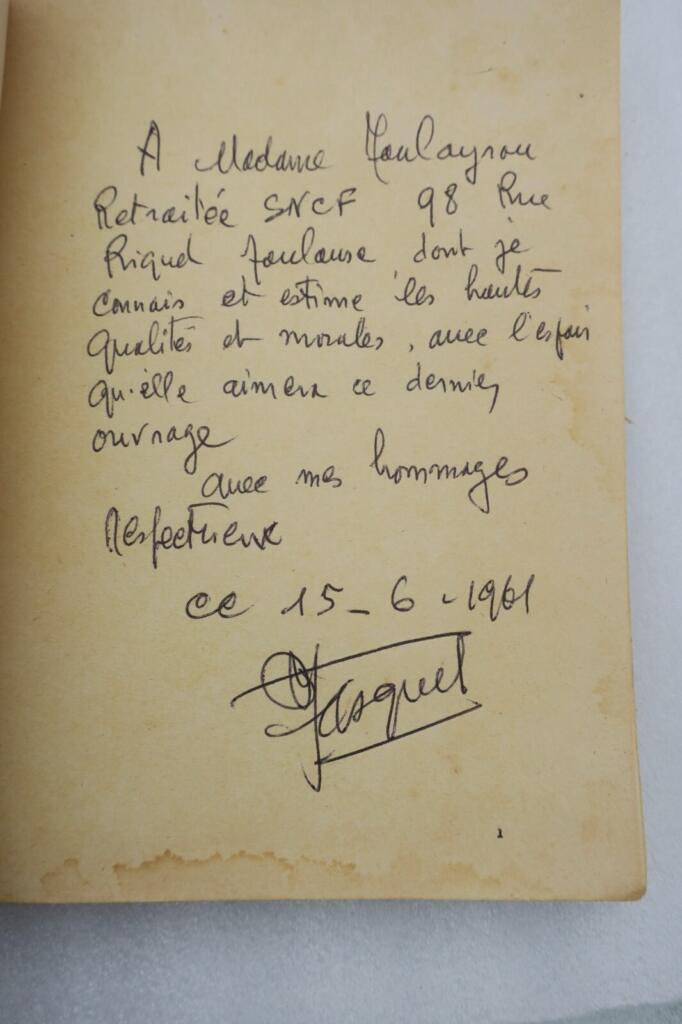 A Madame
Retraitée SNCF 98 Rue
Riquet Toulouse dont je
connais et estime les hautes
qualités et morales, avec l'espoir
qu'elle aimera ce dernier
ouvrage
avec mes hommages
respectueux
ce 15-6-1961
1